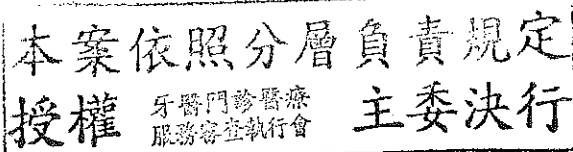 本案依照分層負責規定
授權 牙醫門診醫療服務審查執行會 主委決行